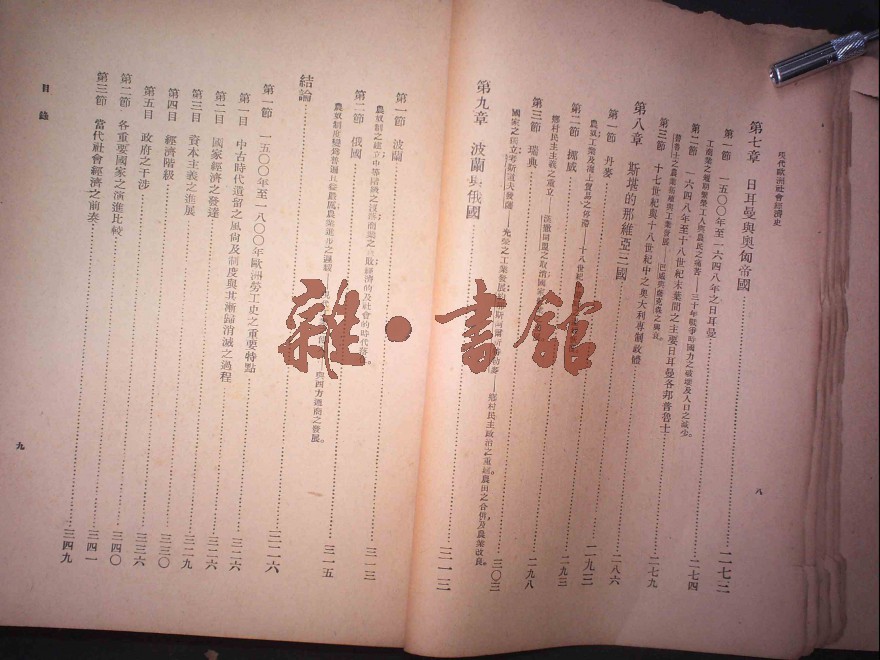 現代歐洲社會經濟史
八
第七章 日耳曼與奧匈帝國
第一節 一五〇〇年至一六四八年之日耳曼……二七二
三十年戰爭時國力之破壞及人口之減少。
第二節 一六四八年至十八世紀末葉間之主要日耳曼各邦普魯士……二七四
普魯士之農業組織與工業發展
第三節 十七世紀與十八世紀中之奧大利專制政體……二七九
第八章 斯堪的那維亞三國
第一節 丹麥……二八六
農奴;工業及海上貿易之停滯——十八世紀
第二節 挪威……二九三
鄉村民主主義之重立
第三節 瑞典……二九八
國家之獨立;考斯道夫發薩 光榮之工業發展 鄉村民主政治之重 農田之合併及農業改良。……三〇三
第九章 波蘭與俄國……三一三
第一節 波蘭……三一三
農奴制之建立 經濟的及社會的時代落。
第二節 俄國……三一五
農奴制度 農業進步之遲緩 與四方通商之發展。
結論……三二六
第一節 一五〇〇年至一八〇〇年歐洲勞工史之重要特點……三二六
第一目 中古時代遺留之風尙及制度與其漸歸消滅之過程……三二六
第二目 國家經濟之發達……三二六
第三目 資本主義之進展……三二九
第四目 經濟階級……三三〇
第五目 政府之干涉……三三六
第二節 各重要國家之演進比較……三四〇
第三節 當代社會經濟之前奏……三四一
三四九
目錄
九
雜·書館